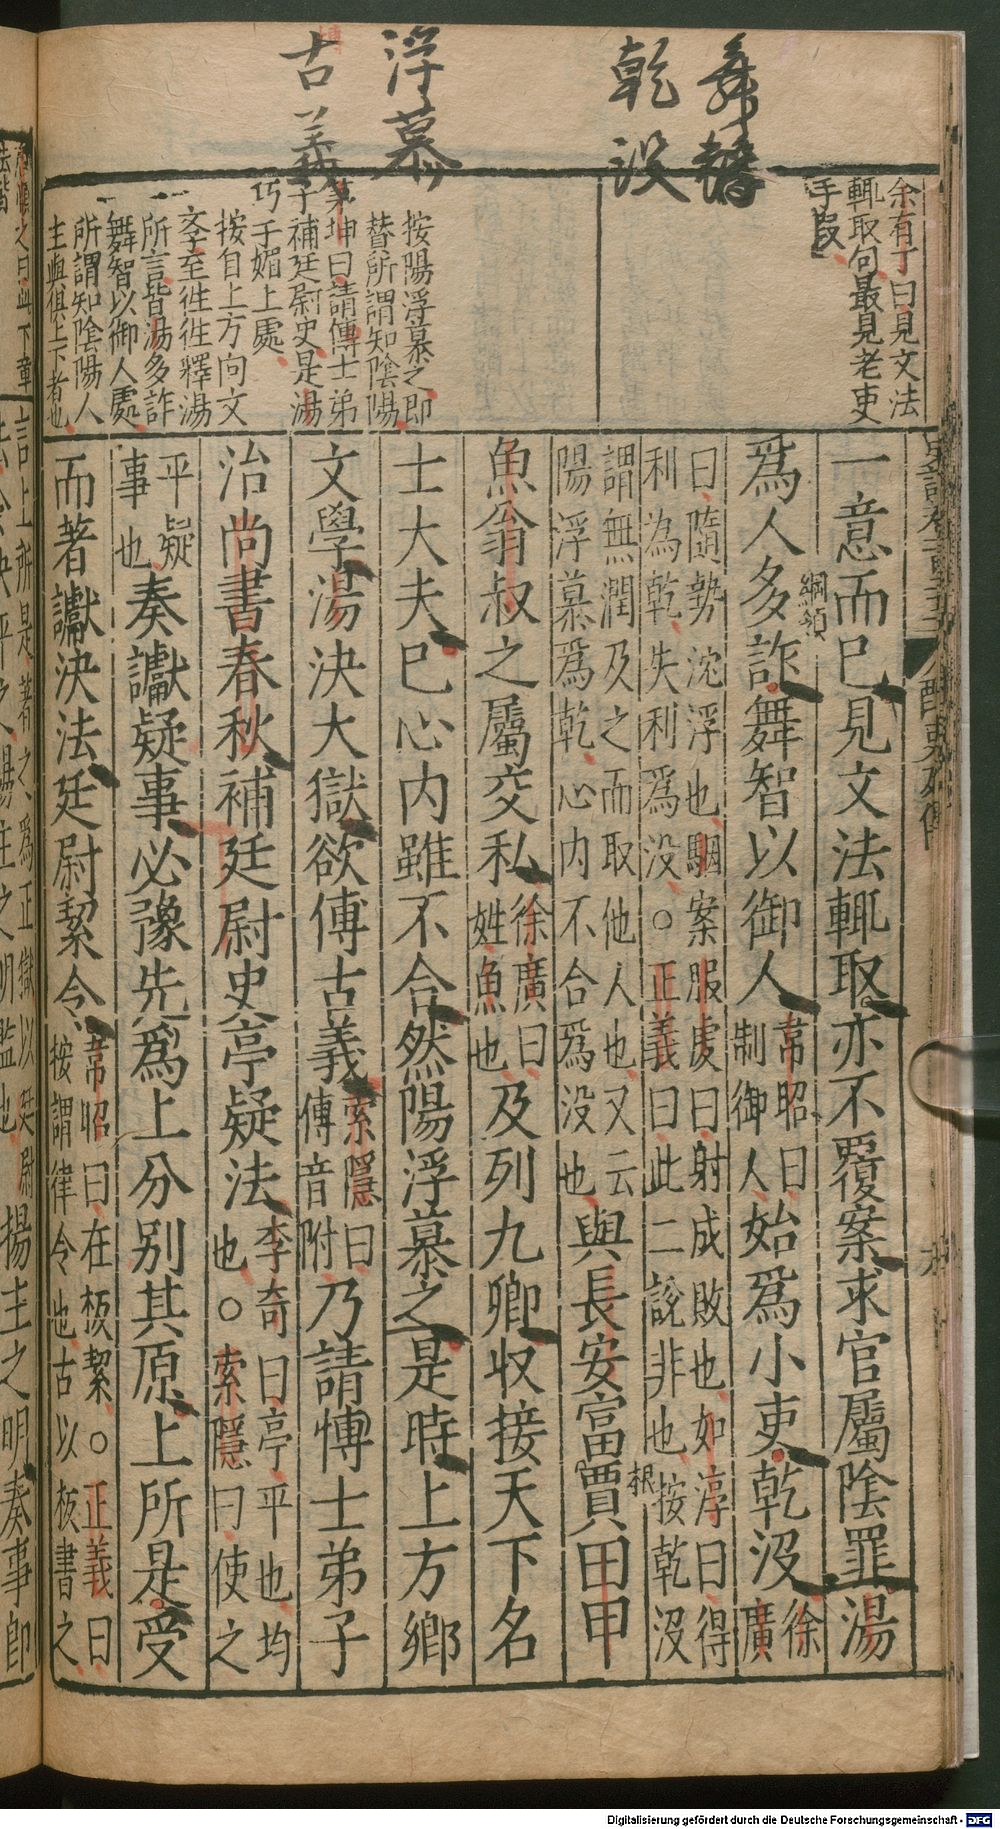 舞智
乾没
浮慕
古義
余有丁曰見文法
輒取句最見老吏
手段
按陽浮慕之即
替所謂知陰陽
茅坤曰請傅士弟
子補廷尉史是湯
巧于媚上處
按自上方向文
李至徃徃釋湯
所言皆湯多詐
舞智以御人處
所謂知陰陽人
主與俱上下者也
一意而已見文法輒取亦不覆案求官屬陰罪湯
綱領
爲人多詐舞智以御人
韋昭曰
制御人
始爲小吏乾没
徐
廣
曰隨勢沈浮也駰案服虔曰射成敗也如淳曰得
利為乾失利爲没○正義曰此二說非也按乾没
謂無潤及之而取他人也又云
陽浮慕爲乾心内不合爲没也
與長安富賈田甲
魚翁叔之屬交私
徐廣曰
姓魚也
及列九卿收接天下名
士大夫已心内雖不合然陽浮慕之是時上方鄉
文學湯決大獄欲傅古義
索隱曰
傅音附
乃請博士弟子
治尚書春秋補廷尉史亭疑法
李奇曰亭平也均
也○索隱曰使之
平疑
事也
奏讞疑事必豫先爲上分别其原上所是受
而著讞決法廷尉絜令
韋昭曰在板絜○正義曰
按謂律令也古以板書之
言上所是著之爲正獄以廷尉
法令決平之揚主之明監也
揚主之明奏事即